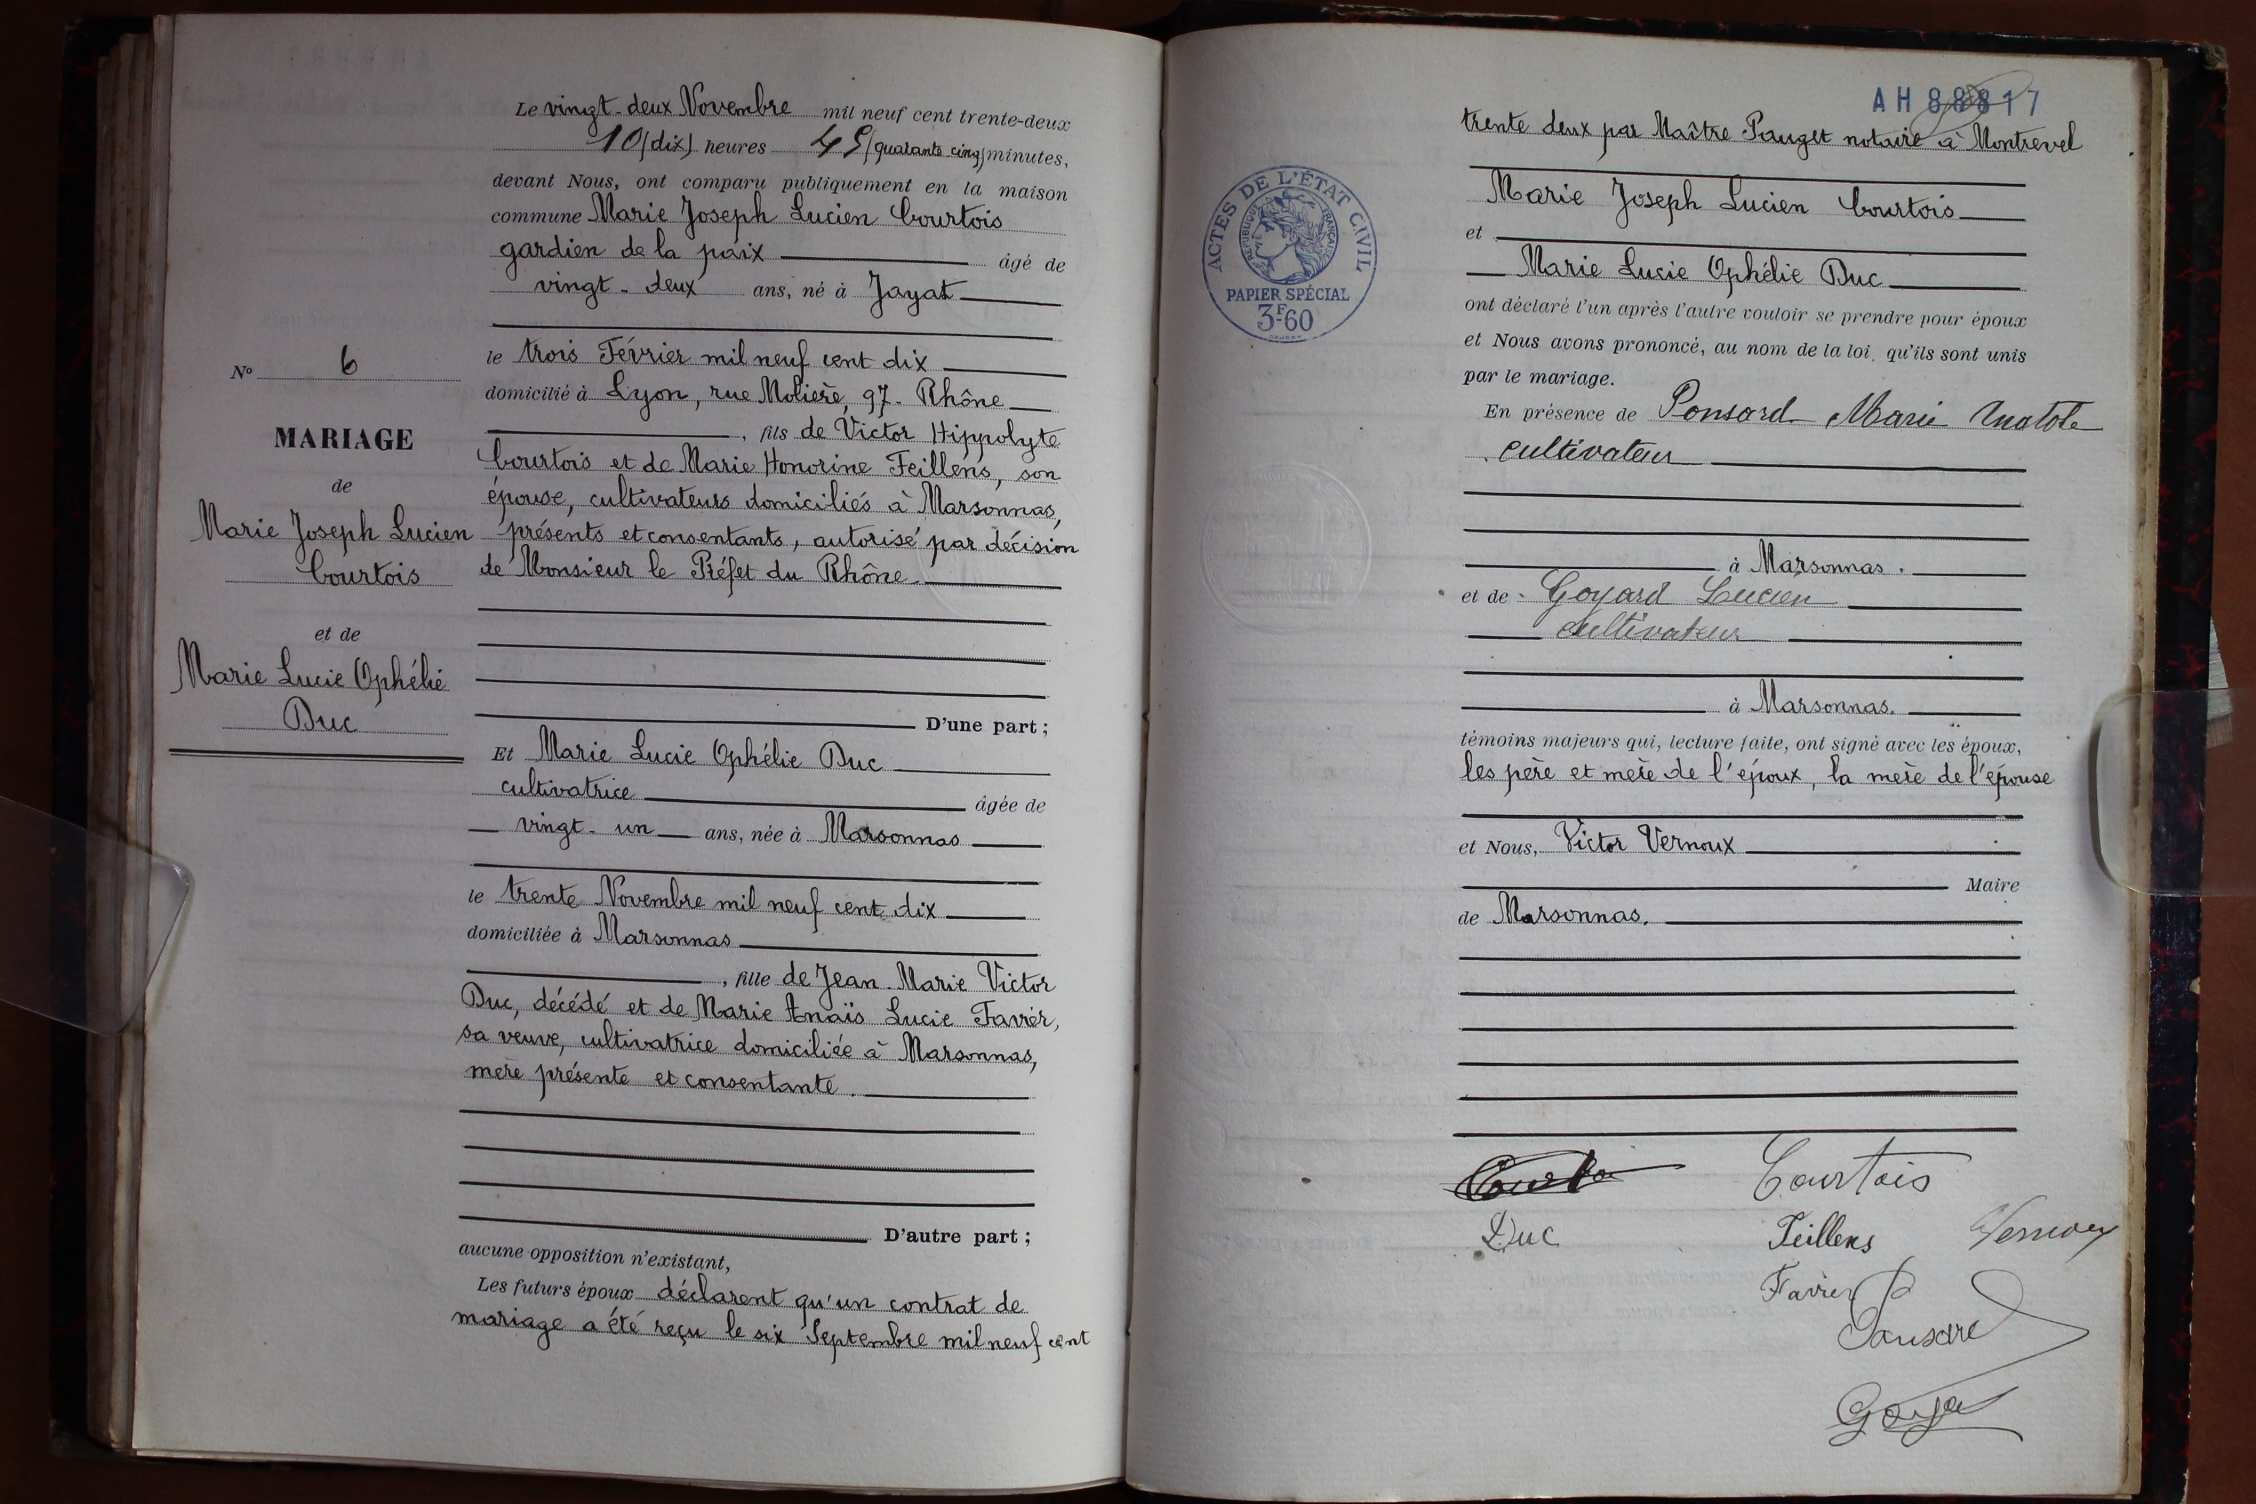 Le vingt-deux Novembre mil neuf cent trente-deux
10 (dix) heures 45 (quarante cinq) minutes,
devant Nous, ont comparu publiquement en la maison
commune Marie Joseph Lucien Courtois
gardien de la paix âgé de
vingt-deux ans, né à Jayat
le trois Février mil neuf cent dix
domicilié à Lyon, rue Molière, 97. Rhône
, fils de Victor Hippolyte
Courtois et de Marie Honorine Feillens, son
épouse, cultivateurs domiciliés à Marsonnas,
présents et consentants, autorisé par décision
de Monsieur le Préfet du Rhône.
D'une part ;
N° 6
MARIAGE
de
Marie Joseph Lucien
Courtois
et de
Marie Lucie Ophélie
Duc
Et Marie Lucie Ophélie Duc
cultivatrice âgée de
vingt-un ans, née à Marsonnas
le trente Novembre mil neuf cent dix
domiciliée à Marsonnas
, fille de Jean-Marie Victor
Duc, décédé et de Marie Anaïs Lucie Favier,
sa veuve, cultivatrice domiciliée à Marsonnas,
mère présente et consentante.
D'autre part ;
aucune opposition n'existant,
Les futurs époux déclarent qu'un contrat de
mariage a été reçu le six Septembre mil neuf cent
AH 88817
trente deux par Maître Pauget notaire à Montrevel
ACTES DE L'ÉTAT CIVIL
RÉPUBLIQUE FRANÇAISE
PAPIER SPÉCIAL
3F60
Marie Joseph Lucien Courtois
et
Marie Lucie Ophélie Duc
ont déclaré l'un après l'autre vouloir se prendre pour époux
et Nous avons prononcé, au nom de la loi, qu'ils sont unis
par le mariage.
En présence de Ponsard Marie Anatole
cultivateur
à Marsonnas.
et de Goyard Lucien
cultivateur
à Marsonnas.
témoins majeurs qui, lecture faite, ont signé avec les époux,
les père et mère de l'époux, la mère de l'épouse
et Nous, Victor Vernoux
Maire
de Marsonnas.
Courtois
Duc
Feillens
Vernoux
Favier
Ponsard